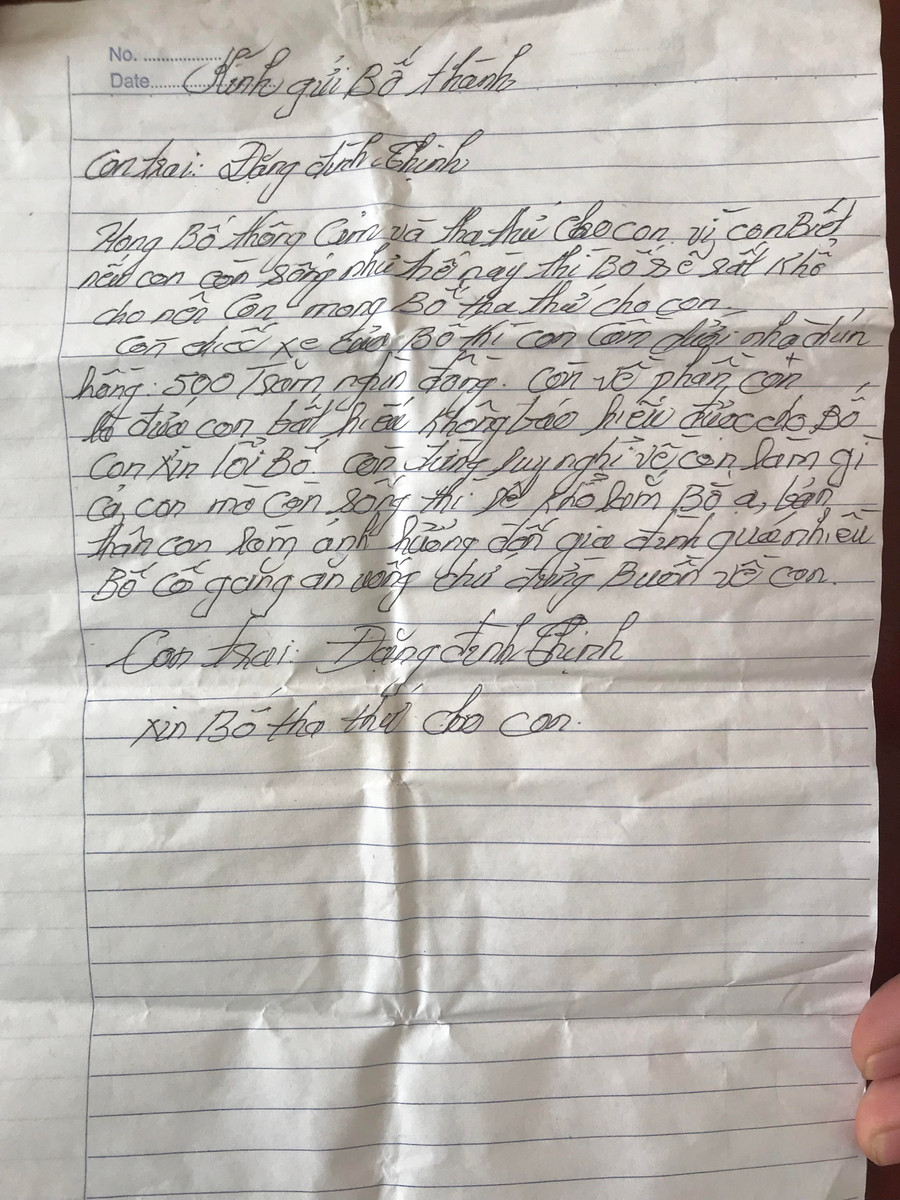 No. ....................
Date.................... Kính gửi Bố thành
Con trai: Đặng đình Thịnh
Mong Bố thông Cảm và tha thứ cho con vì con Biết
nếu con còn sống như thế này thì Bố sẽ rất Khổ
cho nên Con mong Bố tha thứ cho con.
Còn chiếc xe của Bố thì con Cắm dưới nhà dún
hồng: 500 Trăm nghìn đồng. Còn về phần con
là đứa con bất hiếu không báo hiếu được cho Bố
Con xin lỗi Bố. còn đừng suy nghỉ về con làm gì
cả, con mà còn sống thì sẽ khổ lắm Bố ạ, bản
thân con làm ảnh hưởng đến gia đình quá nhiều
Bố cố gắng ăn uống chứ đừng Buồn về con.
Con trai: Đặng đình Thịnh
xin Bố tha thứ cho con.